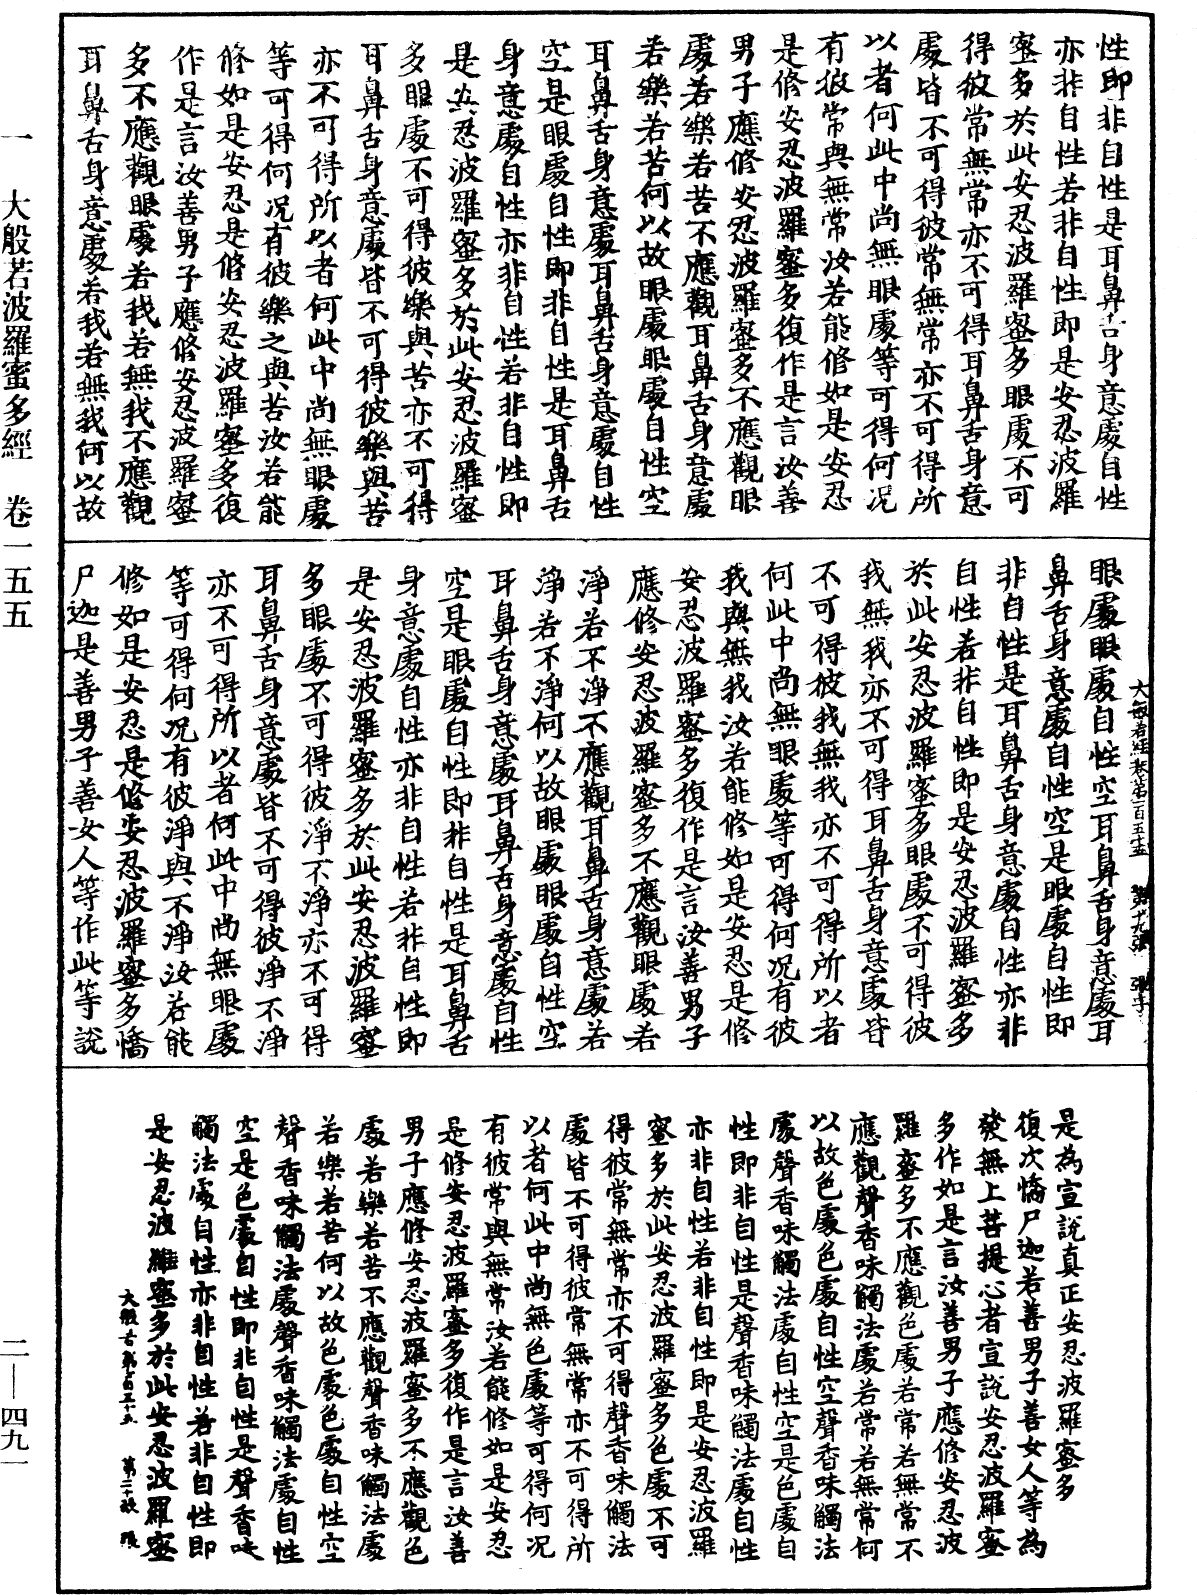 性即非自性是耳鼻舌身意處自性
亦非自性若非自性即是安忍波羅
蜜多於此安忍波羅蜜多眼處不可
得彼常無常亦不可得耳鼻舌身意
處皆不可得彼常無常亦不可得所
以者何此中尚無眼處等可得何況
有彼常與無常汝若能修如是安忍
是修安忍波羅蜜多復作是言汝善
男子應修安忍波羅蜜多不應觀眼
處若樂若苦不應觀耳鼻舌身意處
若樂若苦何以故眼處眼處自性空
耳鼻舌身意處耳鼻舌身意處自性
空是眼處自性即非自性是耳鼻舌
身意處自性亦非自性若非自性即
是安忍波羅蜜多於此安忍波羅蜜
多眼處不可得彼樂與苦亦不可得
耳鼻舌身意處皆不可得彼樂與苦
亦不可得所以者何此中尚無眼處
等可得何況有彼樂之與苦汝若能
修如是安忍是修安忍波羅蜜多復
作是言汝善男子應修安忍波羅蜜
多不應觀眼處若我若無我不應觀
耳鼻舌身意處若我若無我何以故
大般若經卷第一百五十五 第十九張 張字
眼處眼處自性空耳鼻舌身意處耳
鼻舌身意處自性空是眼處自性即
非自性是耳鼻舌身意處自性亦非
自性若非自性即是安忍波羅蜜多
於此安忍波羅蜜多眼處不可得彼
我無我亦不可得耳鼻舌身意處皆
不可得彼我無我亦不可得所以者
何此中尚無眼處等可得何況有彼
我與無我汝若能修如是安忍是修
安忍波羅蜜多復作是言汝善男子
應修安忍波羅蜜多不應觀眼處若
淨若不淨不應觀耳鼻舌身意處若
淨若不淨何以故眼處眼處自性空
耳鼻舌身意處耳鼻舌身意處自性
空是眼處自性即非自性是耳鼻舌
身意處自性亦非自性若非自性即
是安忍波羅蜜多於此安忍波羅蜜
多眼處不可得彼淨不淨亦不可得
耳鼻舌身意處皆不可得彼淨不淨
亦不可得所以者何此中尚無眼處
等可得何況有彼淨與不淨汝若能
修如是安忍是修安忍波羅蜜多憍
尸迦是善男子善女人等作此等說
是為宣說真正安忍波羅蜜多
復次憍尸迦若善男子善女人等為
發無上菩提心者宣說安忍波羅蜜
多作如是言汝善男子應修安忍波
羅蜜多不應觀色處若常若無常不
應觀聲香味觸法處若常若無常何
以故色處色處自性空聲香味觸法
處聲香味觸法處自性空是色處自
性即非自性是聲香味觸法處自性
亦非自性若非自性即是安忍波羅
蜜多於此安忍波羅蜜多色處不可
得彼常無常亦不可得聲香味觸法
處皆不可得彼常無常亦不可得所
以者何此中尚無色處等可得何況
有彼常與無常汝若能修如是安忍
是修安忍波羅蜜多復作是言汝善
男子應修安忍波羅蜜多不應觀色
處若樂若苦不應觀聲香味觸法處
若樂若苦何以故色處色處自性空
聲香味觸法處聲香味觸法處自性
空是色處自性即非自性是聲香味
觸法處自性亦非自性若非自性即
是安忍波羅蜜多於此安忍波羅蜜
大般若第一百五十五 第二十張 張
一 大般若波羅蜜多經 卷一五五
二—四九一